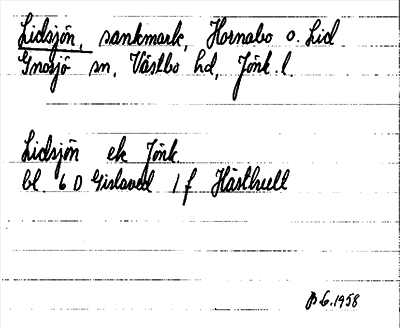 Lidsjön, sankmark, Hornabo o. Lid
Gnosjö sn, Västbo hd, Jönk. l.
Lidsjön ek Jönk
bl. 6 D Gislaved 1 f Hästhult
1958